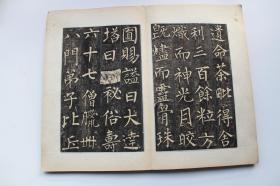 遺命茶毗得舍
利三百餘粒方
熾而神光月皎
既燼而靈骨珠
圓賜謚曰大達
塔曰秘俗壽
六十七僧臘卌
八門弟子比丘